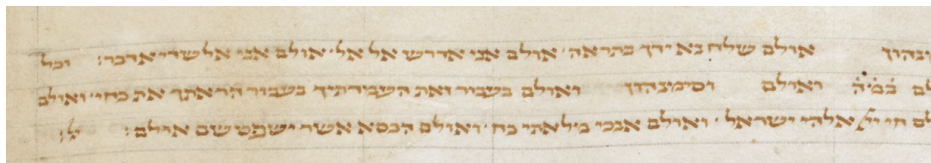 מנהון אולם שלח נא ידך בתראה· אולם אני אדרש אל אל· אולם אני אל שדי אדבר: וכל
לם במ̇ה̇ ואולם וסימנהון ואולם בעבור זאת העמדתיך בעבור הראתך את כחי· ואולם
לם חי יי אלהי ישראל· ואולם אנכי מלאתי כח· ואולם הכסא אשר ישפט שם אולם: ל̇: